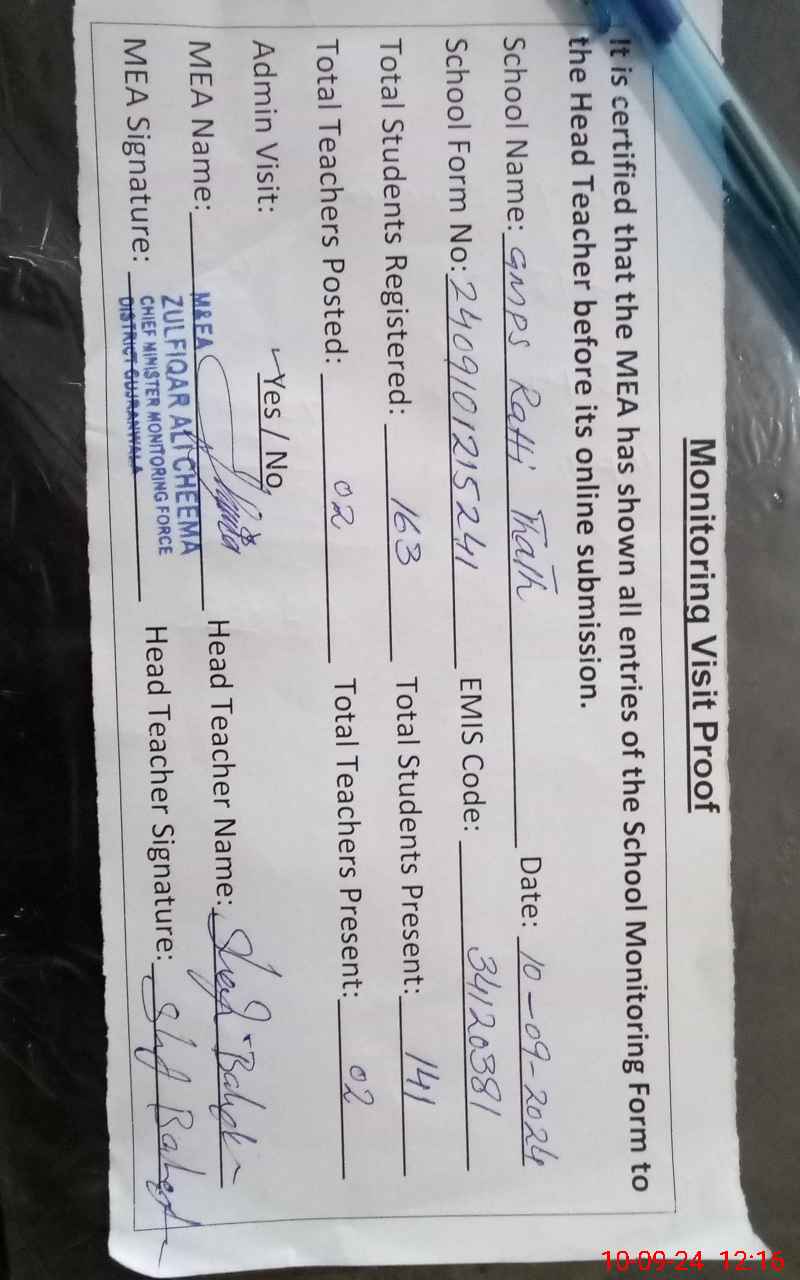 Monitoring Visit Proof
It is certified that the MEA has shown all entries of the School Monitoring Form to
the Head Teacher before its online submission.
School Name: GMPS Ratti Thath Date: 10-09-2024
School Form No: 2409101215241 EMIS Code: 34120381
Total Students Registered: 163 Total Students Present: 141
Total Teachers Posted: 02 Total Teachers Present: 02
Admin Visit: ✓Yes / No
MEA Name: Head Teacher Name:
M&EA
ZULFIQAR ALI CHEEMA
CHIEF MINISTER MONITORING FORCE
DISTRICT GUJRANWALA
MEA Signature: Head Teacher Signature:
10-09-24 12:16